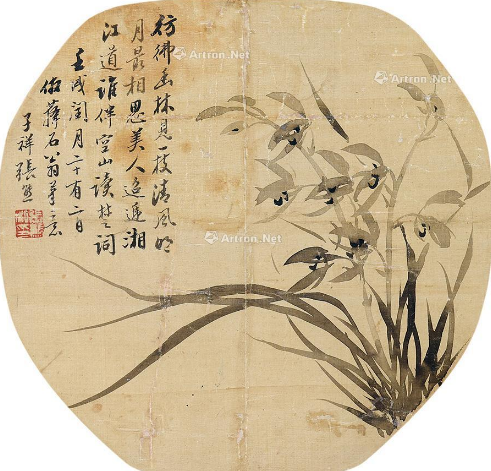 彷彿幽林見一枝清風明
月最相思美人迢遞湘
江道誰伴空山讀楚詞
壬戌閏月二十有二日
倣蘀石翁筆意
子祥張熊
Artron.Net
Artron.Net
Artron.Net